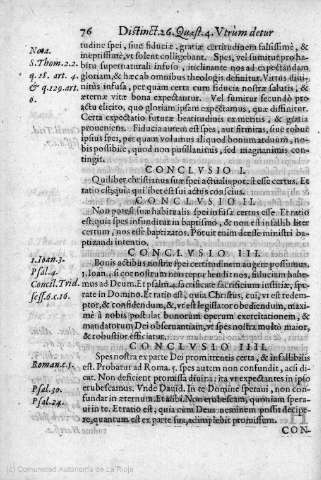 76 Distinct. 26. Quæst. 4. Vtrùm detur
Nota.
S. Thom. 2.2.
q. 18. art. 4.
& q. 129. art
6.
tudine spei, siue fiduciæ, gratiæ certitudinem falsissimè, &
ineptissimè, vt solent colligebant. Spes, vel sumitur pro ha-
bitu supernaturali infuso, inclinante nos ad expectandam
gloriam, & hæc ab omnibus theologis definitur. Virtus diui-
nitus infusa, per quam certa cum fiducia nostræ salutis, &
æternæ vitæ bona expectantur. Vel sumitur secundò pro
actu elicito, quo gloriam ipsam expectamus, quæ diffinitur.
Certa expectatio futuræ beatitudinis ex meritis, & gratia
proueniens. Fiducia autem est spes, aut firmitas, siue robur
ipsius spei, per quam volumus aliquod bonum arduum, no-
bis possibile, quod non pusillanimis, sed magnanimis con-
tingit.
CONCLVSIO I.
Quilibet christianus suæ spei actualis potest esse certus. Et
ratio est; quia quilibet est sui actus conscius.
CONCLVSIO II.
Non potest suæ habitualis spei infusæ certus esse. Et ratio
est; quia spes infunditur in baptismo, & non est infallibiliter
certum, nos esse baptizatos. Potuit enim deesse ministri ba-
ptizandi intentio.
CONCLVSIO III.
1. Ioan. 3.
Psal. 4.
Concil. Trid.
sess. 6. c. 16.
Bonis actibus nostræ spei certitudinem augere possumus.
1. Ioan. si cor nostrum non reprehenderit nos, fiduciam habe-
mus ad Deum. Et psalm. 4. sacrificate sacrificium iustitiæ, spe-
rate in Domino. Et ratio est; quia Christus, cui, vt est redem-
ptor, & confidendum, &, vt est legislator obediendum, maxi-
mè à nobis postulat bonorum operum exercitationem, &
mandatorum Dei obseruantiam, vt spes nostra multò maior,
& robustior efficiatur.
CONCLVSIO IIII.
Roman. 5.
Psal. 30.
Psal. 24.
Spes nostra ex parte Dei promittentis certa, & infallibilis
est. Probatur ad Roma. 5. spes autem non confundit, acsi di-
cat. Non deficient promissa diuina: ita vt expectantes in ipso
erubescamus. Vnde Dauid. In te Domine speraui, non con-
fundar in æternum. Et alibi. Non erubescam, quoniam spera-
ui in te. Et ratio est, quia cum Deus neminem possit decipe-
re, quantum est ex parte sui, accimplebit promissum.
CON-
(c) Comunidad Autónoma de La Rioja